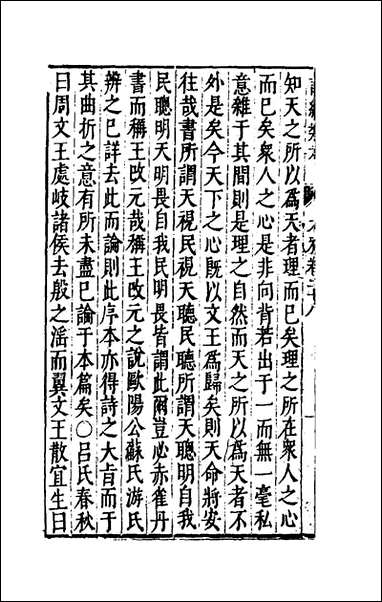 知天之所以爲天者理而已矣理之所在衆人之心
而已矣衆人之心是非向背若出于一而無一毫私
意雜于其間則是理之自然而天之所以爲天者不
外是矣今天下之心既以文王爲歸矣則天命將安
往哉書所謂天視民視天聽民聽所謂天聰明自我
民聰明天明畏自我民明畏皆謂此爾豈必赤雀丹
書而稱王改元哉稱王改元之說歐陽公蘇氏游氏
辨之已詳去此而論則此序本亦得詩之大㫖而于
其曲折之意有所未盡已論于本篇矣○吕氏春秋
曰周文王處岐諸侯去殷之滛而翼文王散宜生曰